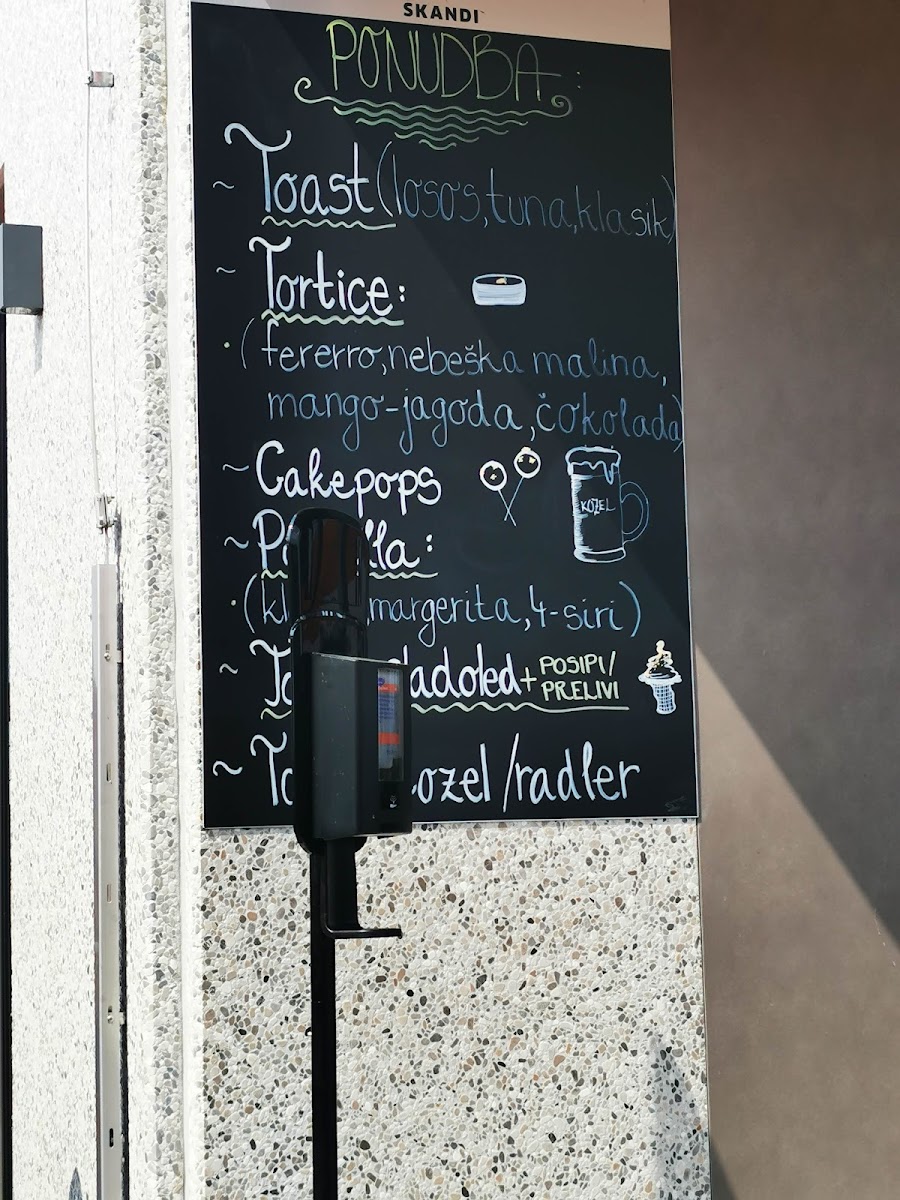 SKANDI
PONUDBA:
~ Toast (losos, tuna, klasik)
~ Tortice:
• (fererro, nebeška malina,
mango-jagoda, čokolada)
~ Cakepops
KOZEL
• margerita, 4-siri)
+ POSIPI/
PRELIVI
/radler